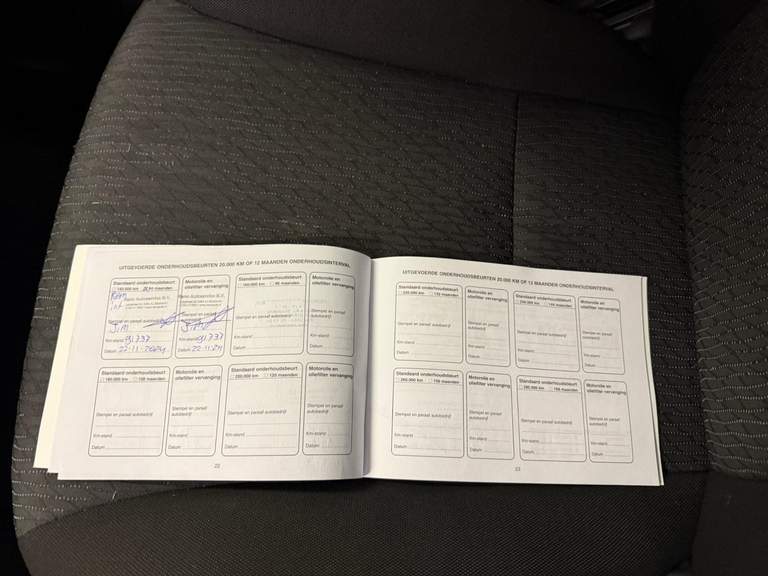 UITGEVOERDE ONDERHOUDSBEURTEN 20.000 KM OF 12 MAANDEN ONDERHOUDSINTERVAL
Standaard onderhoudsbeurt
Motorolie en
oliefilter vervanging
Reno Autoservice B.V.
Reno Autoservice B.V.
Stempel en paraaf autobedrijf
Stempel en paraaf
Km-stand 91.737
Km-stand 91737
Datum 22-11-2024
Datum 22-11-24
Standaard onderhoudsbeurt
160.000 km 96 maanden
Motorolie en
oliefilter vervanging
Stempel en paraaf autobedrijf
Stempel en paraaf
autobedrijf
Km-stand
Km-stand
Datum
Datum
Standaard onderhoudsbeurt
180.000 km 108 maanden
Motorolie en
oliefilter vervanging
Stempel en paraaf autobedrijf
Stempel en paraaf
autobedrijf
Km-stand
Km-stand
Datum
Datum
Standaard onderhoudsbeurt
200.000 km 120 maanden
Motorolie en
oliefilter vervanging
Stempel en paraaf autobedrijf
Stempel en paraaf
autobedrijf
Km-stand
Km-stand
Datum
Datum
22
UITGEVOERDE ONDERHOUDSBEURTEN 20.000 KM OF 12 MAANDEN ONDERHOUDSINTERVAL
Standaard onderhoudsbeurt
220.000 km 132 maanden
Motorolie en
oliefilter vervanging
Stempel en paraaf autobedrijf
Stempel en paraaf
autobedrijf
Km-stand
Km-stand
Datum
Datum
Standaard onderhoudsbeurt
Motorolie en
oliefilter vervanging
Stempel en paraaf autobedrijf
Stempel en paraaf
autobedrijf
Km-stand
Km-stand
Datum
Datum
Standaard onderhoudsbeurt
Motorolie en
oliefilter vervanging
Stempel en paraaf autobedrijf
Stempel en paraaf
autobedrijf
Km-stand
Km-stand
Datum
Datum
Standaard onderhoudsbeurt
Motorolie en
oliefilter vervanging
Stempel en paraaf autobedrijf
Stempel en paraaf
autobedrijf
Km-stand
Km-stand
Datum
Datum
23